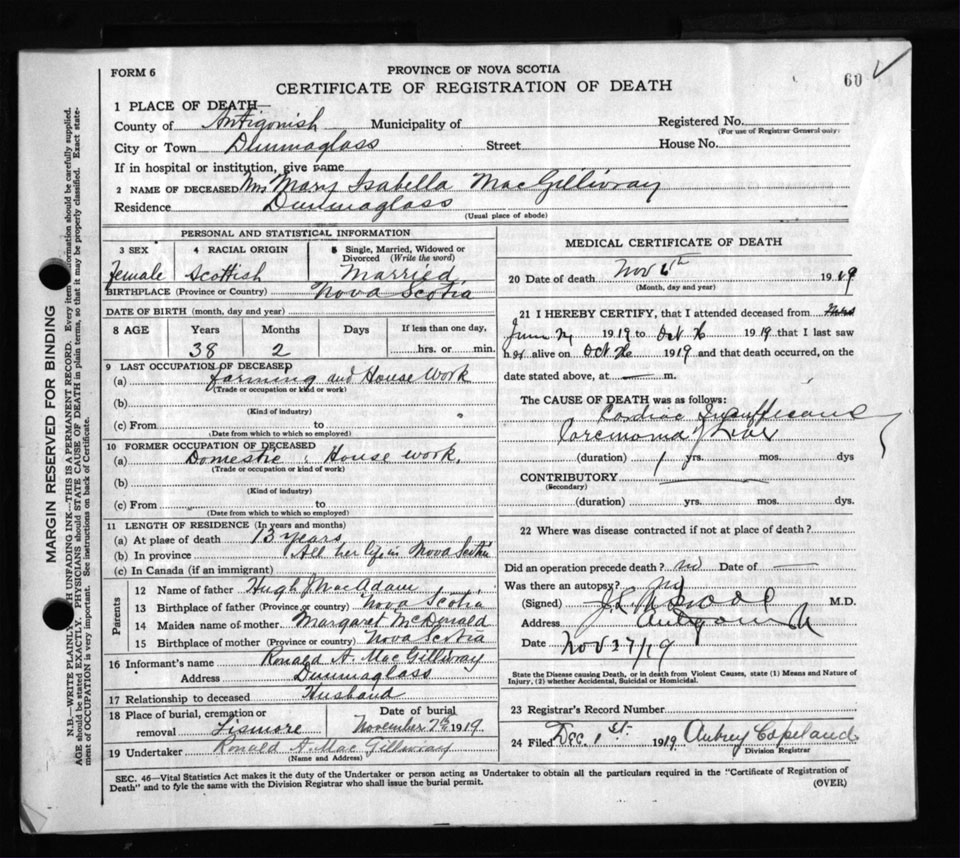 FORM 6
PROVINCE OF NOVA SCOTIA
CERTIFICATE OF REGISTRATION OF DEATH
60 ✓
1 PLACE OF DEATH—
County of Antigonish Municipality of
City or Town Dunmaglass Street
If in hospital or institution, give name
Registered No.
(For use of Registrar General only)
House No.
2 NAME OF DECEASED Mrs Mary Isabella MacGillivray
Residence Dunmaglass
(Usual place of abode)
PERSONAL AND STATISTICAL INFORMATION
3 SEX 4 RACIAL ORIGIN 5 Single, Married, Widowed or Divorced (Write the word)
female Scottish Married
BIRTHPLACE (Province or Country) Nova Scotia
DATE OF BIRTH (month, day and year)
8 AGE Years Months Days If less than one day,
38 2 hrs. or min.
9 LAST OCCUPATION OF DECEASED
(a) farming and House Work
(Trade or occupation or kind or work)
(b)
(Kind of industry)
(c) From to
(Date from which to which so employed)
10 FORMER OCCUPATION OF DECEASED
(a) Domestic House work.
(Trade or occupation or kind of work)
(b)
(Kind of industry)
(c) From to
(Date from which to which so employed)
11 LENGTH OF RESIDENCE (In years and months)
(a) At place of death 13 years
(b) In province All her life in Nova Scotia
(c) In Canada (if an immigrant)
Parents
12 Name of father Hugh MacAdam
13 Birthplace of father (Province or country) Nova Scotia
14 Maiden name of mother Margaret McDonald
15 Birthplace of mother (Province or country) Nova Scotia
16 Informant's name Ronald A. MacGillivray
Address Dunmaglass
17 Relationship to deceased Husband
18 Place of burial, cremation or removal Lismore Date of burial November 7th 1919
19 Undertaker Ronald A. MacGillivray
(Name and Address)
MEDICAL CERTIFICATE OF DEATH
20 Date of death Nov 6th 1919
(Month, day and year)
21 I HEREBY CERTIFY, that I attended deceased from
June 1919 to Oct 1919 that I last saw
her alive on Oct 1919 and that death occurred, on the
date stated above, at — m.
The CAUSE OF DEATH was as follows:
Cardiac Insufficiency
Carcinoma of Liver
(duration) 1 yrs. mos. dys
CONTRIBUTORY
(Secondary)
(duration) yrs. mos. dys.
22 Where was disease contracted if not at place of death?
Did an operation precede death? no Date of —
Was there an autopsy? no
(Signed) M.D.
Address Antigonish
Date Nov 27/19
State the Disease causing Death, or in death from Violent Causes, state (1) Means and Nature of
Injury, (2) whether Accidental, Suicidal or Homicidal.
23 Registrar's Record Number
24 Filed Dec. 1st. 1919 Aubrey Copeland
Division Registrar
SEC. 46—Vital Statistics Act makes it the duty of the Undertaker or person acting as Undertaker to obtain all the particulars required in the "Certificate of Registration of
Death" and to fyle the same with the Division Registrar who shall issue the burial permit. (OVER)
MARGIN RESERVED FOR BINDING
N.B.—WRITE PLAINLY, WITH UNFADING INK—THIS IS A PERMANENT RECORD. Every item of information should be carefully supplied.
AGE should be stated EXACTLY. PHYSICIANS should STATE CAUSE OF DEATH in plain terms, so that it may be properly classified. Exact state-
ment of OCCUPATION is very important. See instructions on back of Certificate.